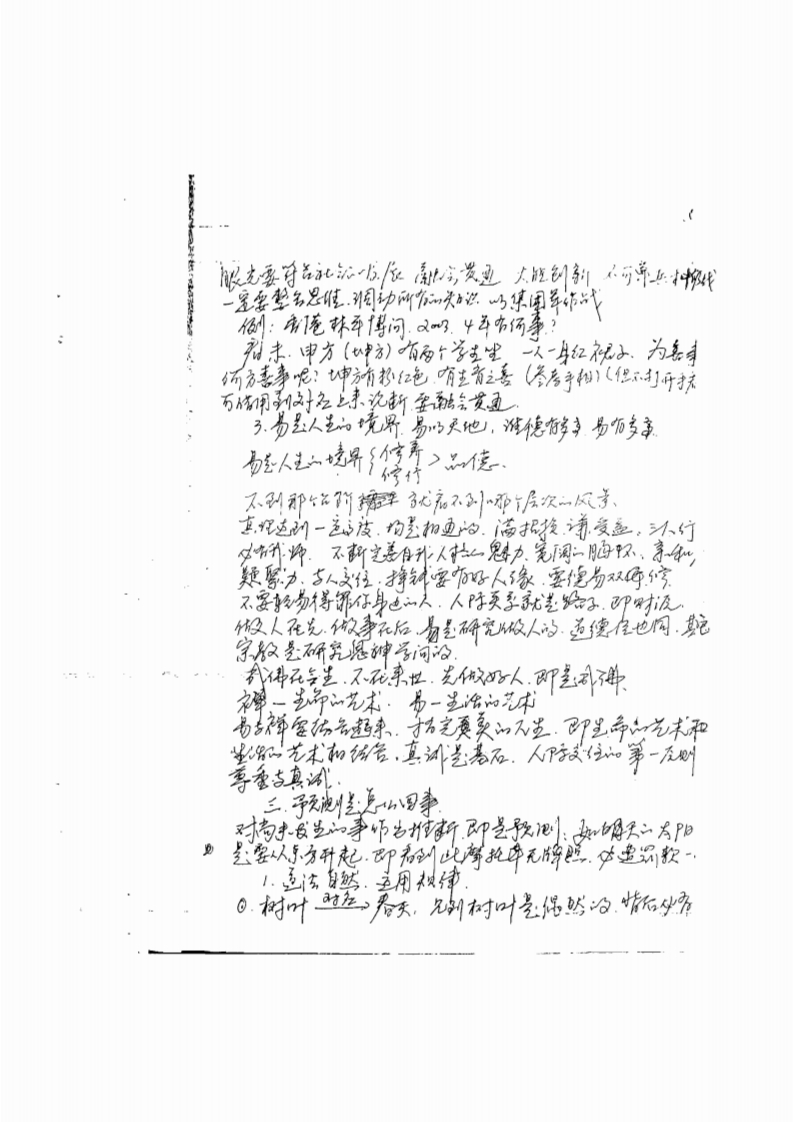 眼光要符合社会发展 融会贯通 大胆创新 不可单兵种作战
一定要整合思维.调动所有的知识 以集团军作战
例：香港林平博问.2003.4年有何事？
看来.申方(坤方)有两个学生坐 一人一身红裙子.为喜事
何方喜事呢？坤方有粉红色.有生育之喜(参看手相)(但不打开才
可信用到对应上来论断.要融会贯通.
3.易是人生的境界.易的天地，谁德有多高 易有多高
易是人生的境界{修养
修行>品德.
不到那个台阶 就看不到那个层次的风景.
真理达到一定高度.均是相通的.满招损.谦受益.三人行
必有我师.不断完善自我人格的魅力.宽阔的胸怀.亲和,
凝聚力.与人交往.挣钱要有好人缘.要德易双修
不要轻易得罪你身边的人.人际关系就是路子.即财源.
做人在先.做事在后.易是研究做人的.道德经也同.其它
宗教是研究鬼神学问的.
我佛在今生.不在来世.先做好人.即是我佛.
禅—生命的艺术.易—生活的艺术
易与禅要结合起来.才有完美的人生.即生命的艺术和
生活的艺术相结合.真诚是基石.人际交往的第一原则
尊重与真诚.
三.予测是怎么回事.
对尚未发生的事作出推断.即是予测：如明天的太阳
是要从东方升起.即看到此摩托车无牌照.必遭罚款.
1.道法自然.运用规律.
①.树叶 对应→ 春天.见到树叶是偶然的.背后必有